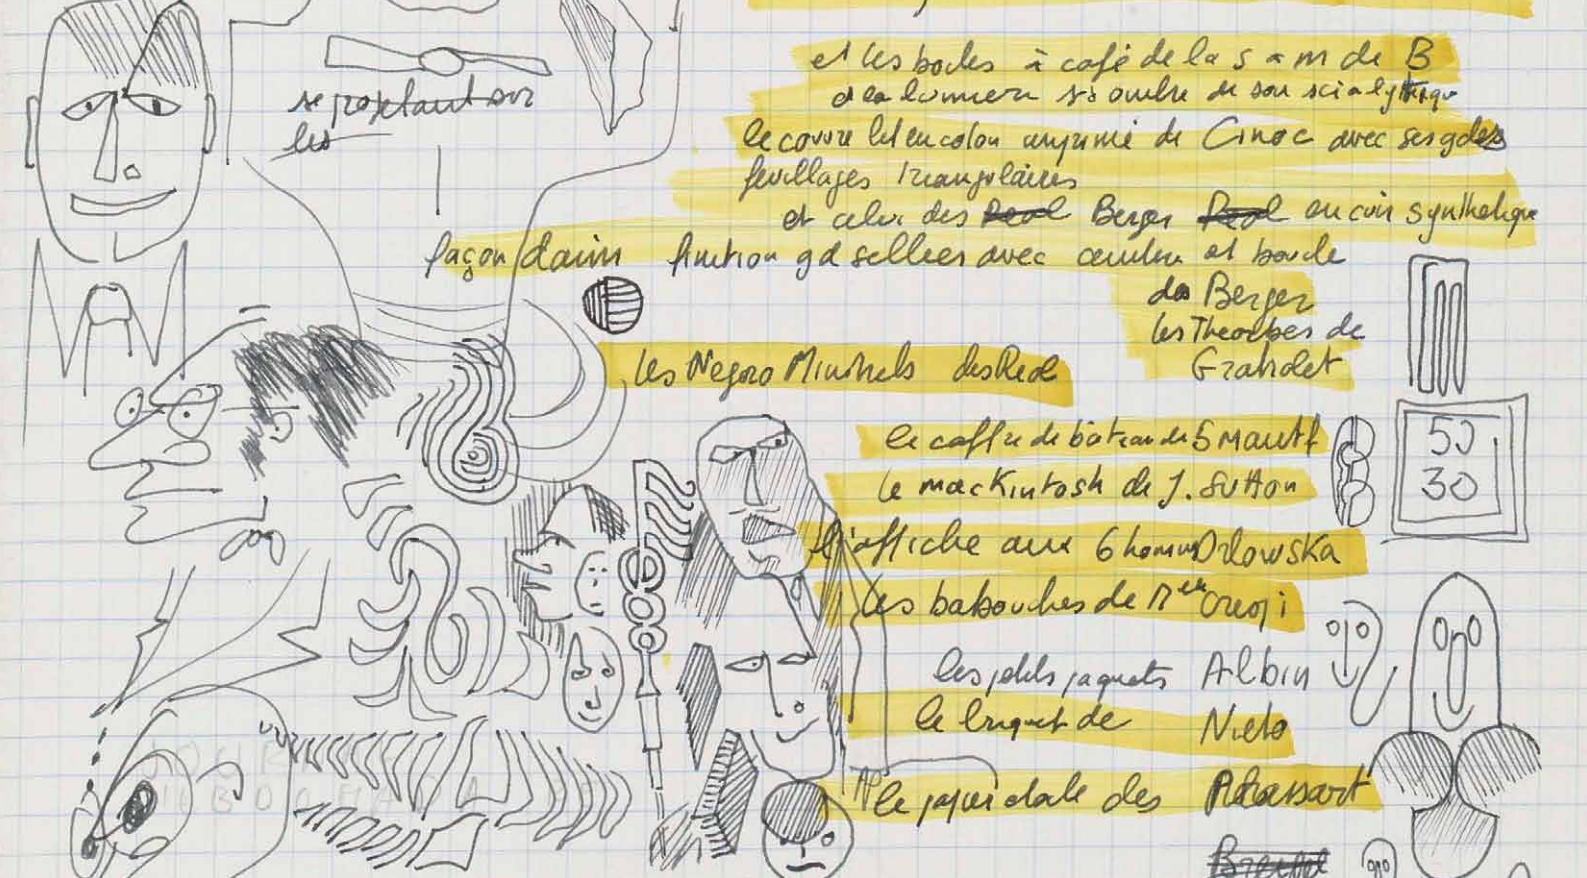 se projetant sur
les
et les boules à café de la S a m de B
de la lumière ss ombre de son scialytique
le couvre lit en coton imprimé de Cinoc avec ses gdes
feuillages triangulaires
et celui des Réol Berger Réol en cuir synthetique
façon daim finition gd sellier avec ceinture et boucle
des Berger
les Theorbes de
Gratiolet
les Negro Minstrels des Réol
le coffre de bateau de Smautf
le mackintosh de J. Sutton
l'affiche aux 6 hommes Orlowska
les babouches de Melle Crespi
les petits paquets Albin
le briquet de Nieto
50
30
le des Plassaert